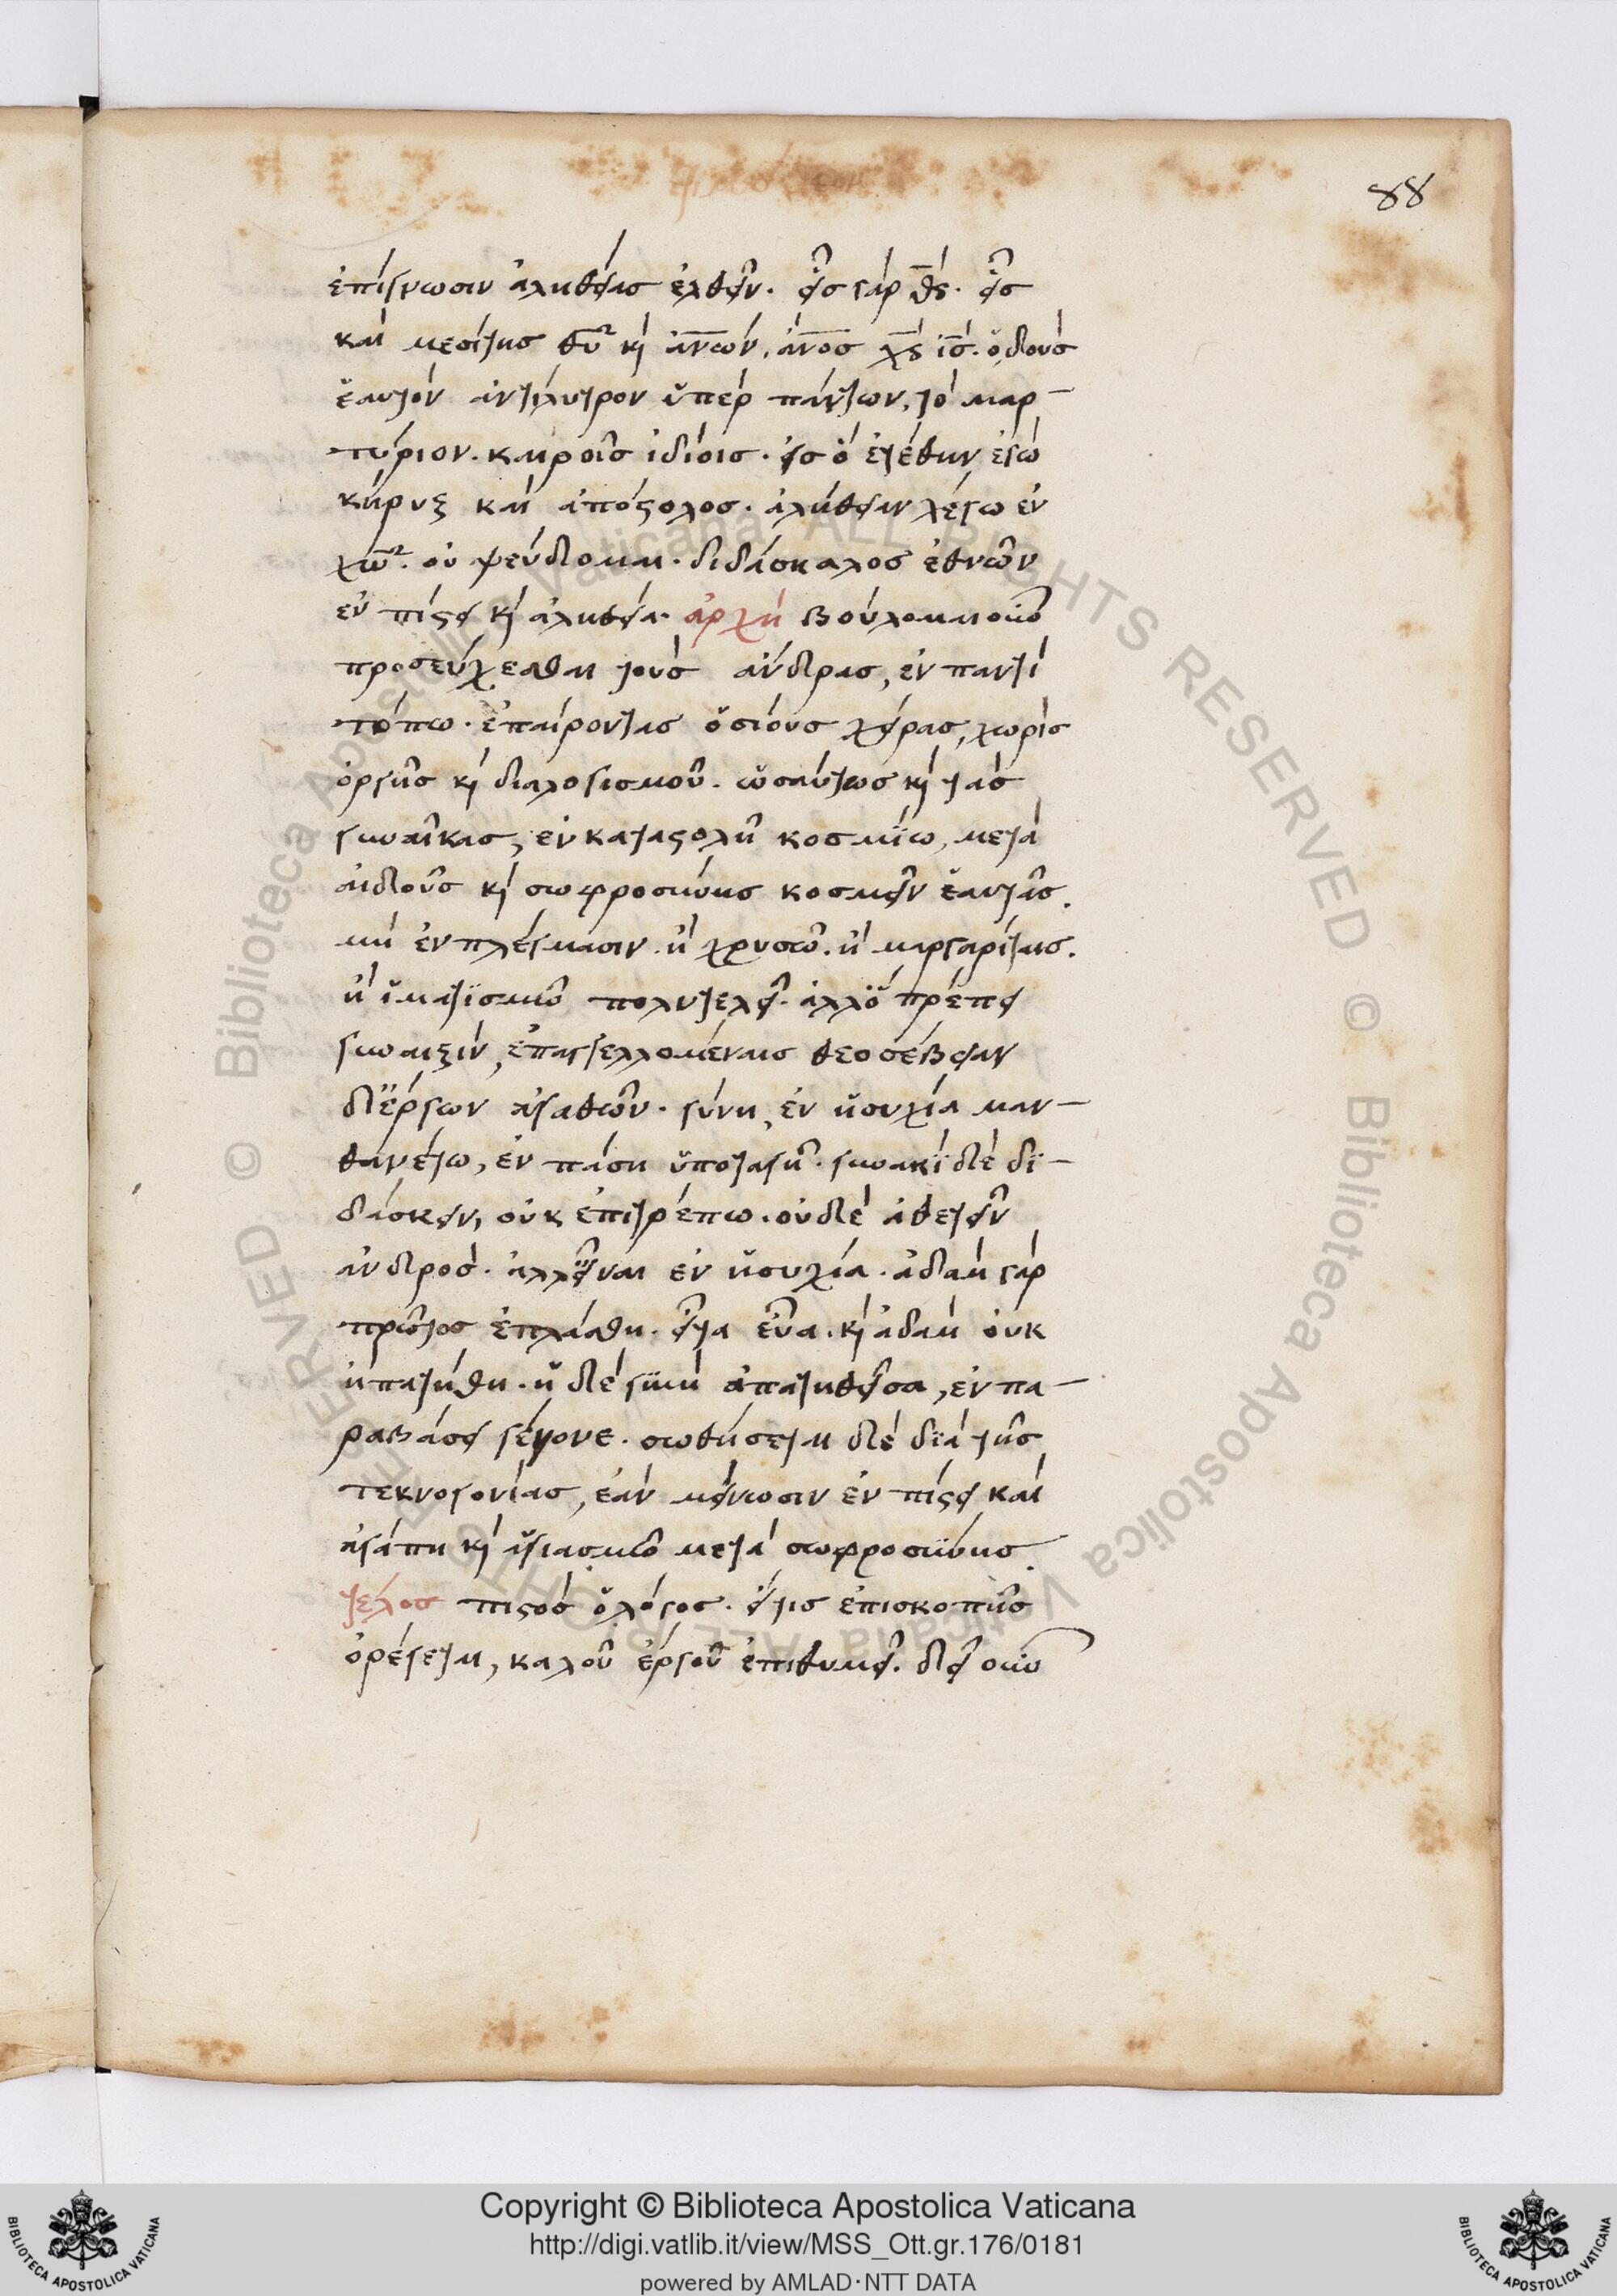 88
ἐπίγνωσιν ἀληθείας ἐλθεῖν. εἷς γὰρ θς. εἷς
καὶ μεσίτης θυ κὶ ἀνων, ἄνος χς ις. ὁ δοὺς
ἑαυτὸν ἀντίλυτρον ὑπὲρ πάντων, τὸ μαρ-
τύριον. καιροῖς ἰδίοις. εἰς ὃ ἐτέθην ἐγὼ
κήρυξ καὶ ἀπόστολος. ἀλήθειαν λέγω ἐν
χω. οὐ ψεύδομαι. διδάσκαλος ἐθνῶν
ἐν πίστει κὶ ἀληθεία. ἀρχὴ βούλομαι οὖν
προσεύχεσθαι τοὺς ἄνδρας, ἐν παντὶ
τόπω. ἐπαίροντας ὁσίους χεῖρας, χωρὶς
ὀργῆς κὶ διαλογισμοῦ. ὡσαύτως κὶ τὰς
γυναῖκας, ἐν καταστολῆ κοσμίω, μετὰ
αἰδοῦς κὶ σωφροσύνης κοσμεῖν ἑαυτὰς.
μὴ ἐν πλέγμασιν. ἢ χρυσῶ. ἢ μαργαρίταις.
ἢ ἱματϊσμῶ πολυτελεῖ. ἀλλ' ὃ πρέπει
γυναιξὶν, ἐπαγγελλομέναις θεοσέβειαν
δι' ἔργων ἀγαθῶν. γύνη, ἐν ἡσυχία μαν-
θανέτω, ἐν πάση ὑποταγῆ. γυναικὶ δὲ δϊ-
δάσκειν, οὐκ ἐπιτρέπω. οὐδὲ ἀθετεῖν
ἀνδρὸς. ἀλλ' εἶναι ἐν ἡσυχία. ἀδὰμ γὰρ
πρῶτος ἐπλάσθη. εἶτα εὖα. κὶ ἀδὰμ οὐκ
ἠπατήθη. ἡ δὲ γυνὴ ἀπατηθεῖσα, ἐν πα-
ραβάσει γέγονε. σωθήσεται δὲ δϊὰ τῆς
τεκνογονίας, ἐὰν μείνωσιν ἐν πίστει καὶ
ἀγάπη κὶ ἁγιασμῶ μετὰ σωφροσύνης.
τέλος πιστὸς ὁ λόγος. εἴ τις ἐπισκοπῆς
ὀρέγεται, καλοῦ ἔργοῦ ἐπιθυμεῖ. δεῖ οὖν
Copyright © Biblioteca Apostolica Vaticana
http://digi.vatlib.it/view/MSS_Ott.gr.176/0181
powered by AMLAD·NTT DATA